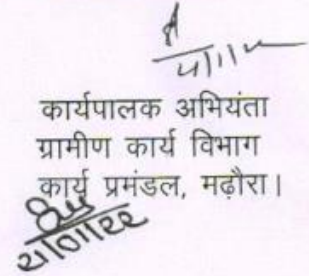 कार्यपालक अभियंता
ग्रामीण कार्य विभाग
कार्य प्रमंडल, मढ़ौरा।